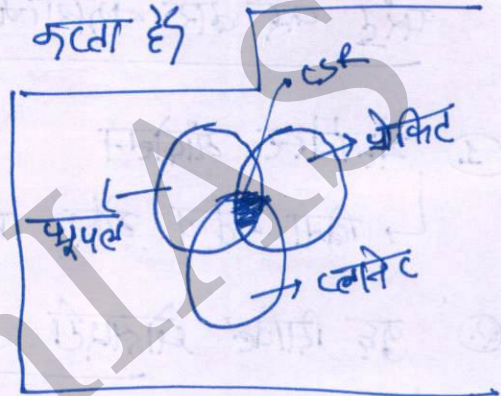 करता है
CSR
प्रोफिट
प्यूपल
प्लानेट
IAS